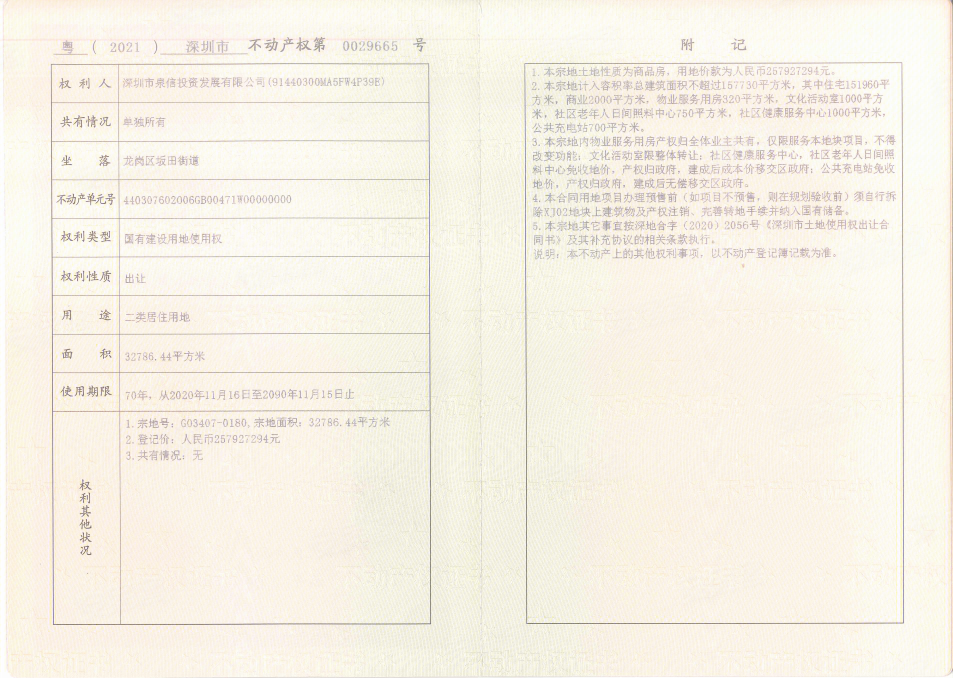 粤 ( 2021 ) 深圳市 不动产权第 0029665 号
权利人 深圳市泉信投资发展有限公司(91440300MA5FW4P39E)
共有情况 单独所有
坐落 龙岗区坂田街道
不动产单元号 440307602006GB00471W00000000
权利类型 国有建设用地使用权
权利性质 出让
用途 二类居住用地
面积 32786.44平方米
使用期限 70年，从2020年11月16日至2090年11月15日止
权利其他状况
1.宗地号：G03407-0180,宗地面积：32786.44平方米
2.登记价：人民币257927294元
3.共有情况：无
附记
1.本宗地土地性质为商品房，用地价款为人民币257927294元。
2.本宗地计入容积率总建筑面积不超过157730平方米，其中住宅151960平
方米，商业2000平方米，物业服务用房320平方米，文化活动室1000平方
米，社区老年人日间照料中心750平方米，社区健康服务中心1000平方米，
公共充电站700平方米。
3.本宗地内物业服务用房产权归全体业主共有，仅限服务本地块项目，不得
改变功能；文化活动室限整体转让；社区健康服务中心，社区老年人日间照
料中心免收地价，产权归政府，建成后成本价移交区政府；公共充电站免收
地价，产权归政府，建成后无偿移交区政府。
4.本合同用地项目办理预售前（如项目不预售，则在规划验收前）须自行拆
除XJ02地块上建筑物及产权注销、完善转地手续并纳入国有储备。
5.本宗地其它事宜按深地合字（2020）2056号《深圳市土地使用权出让合
同书》及其补充协议的相关条款执行。
说明：本不动产上的其他权利事项，以不动产登记簿记载为准。